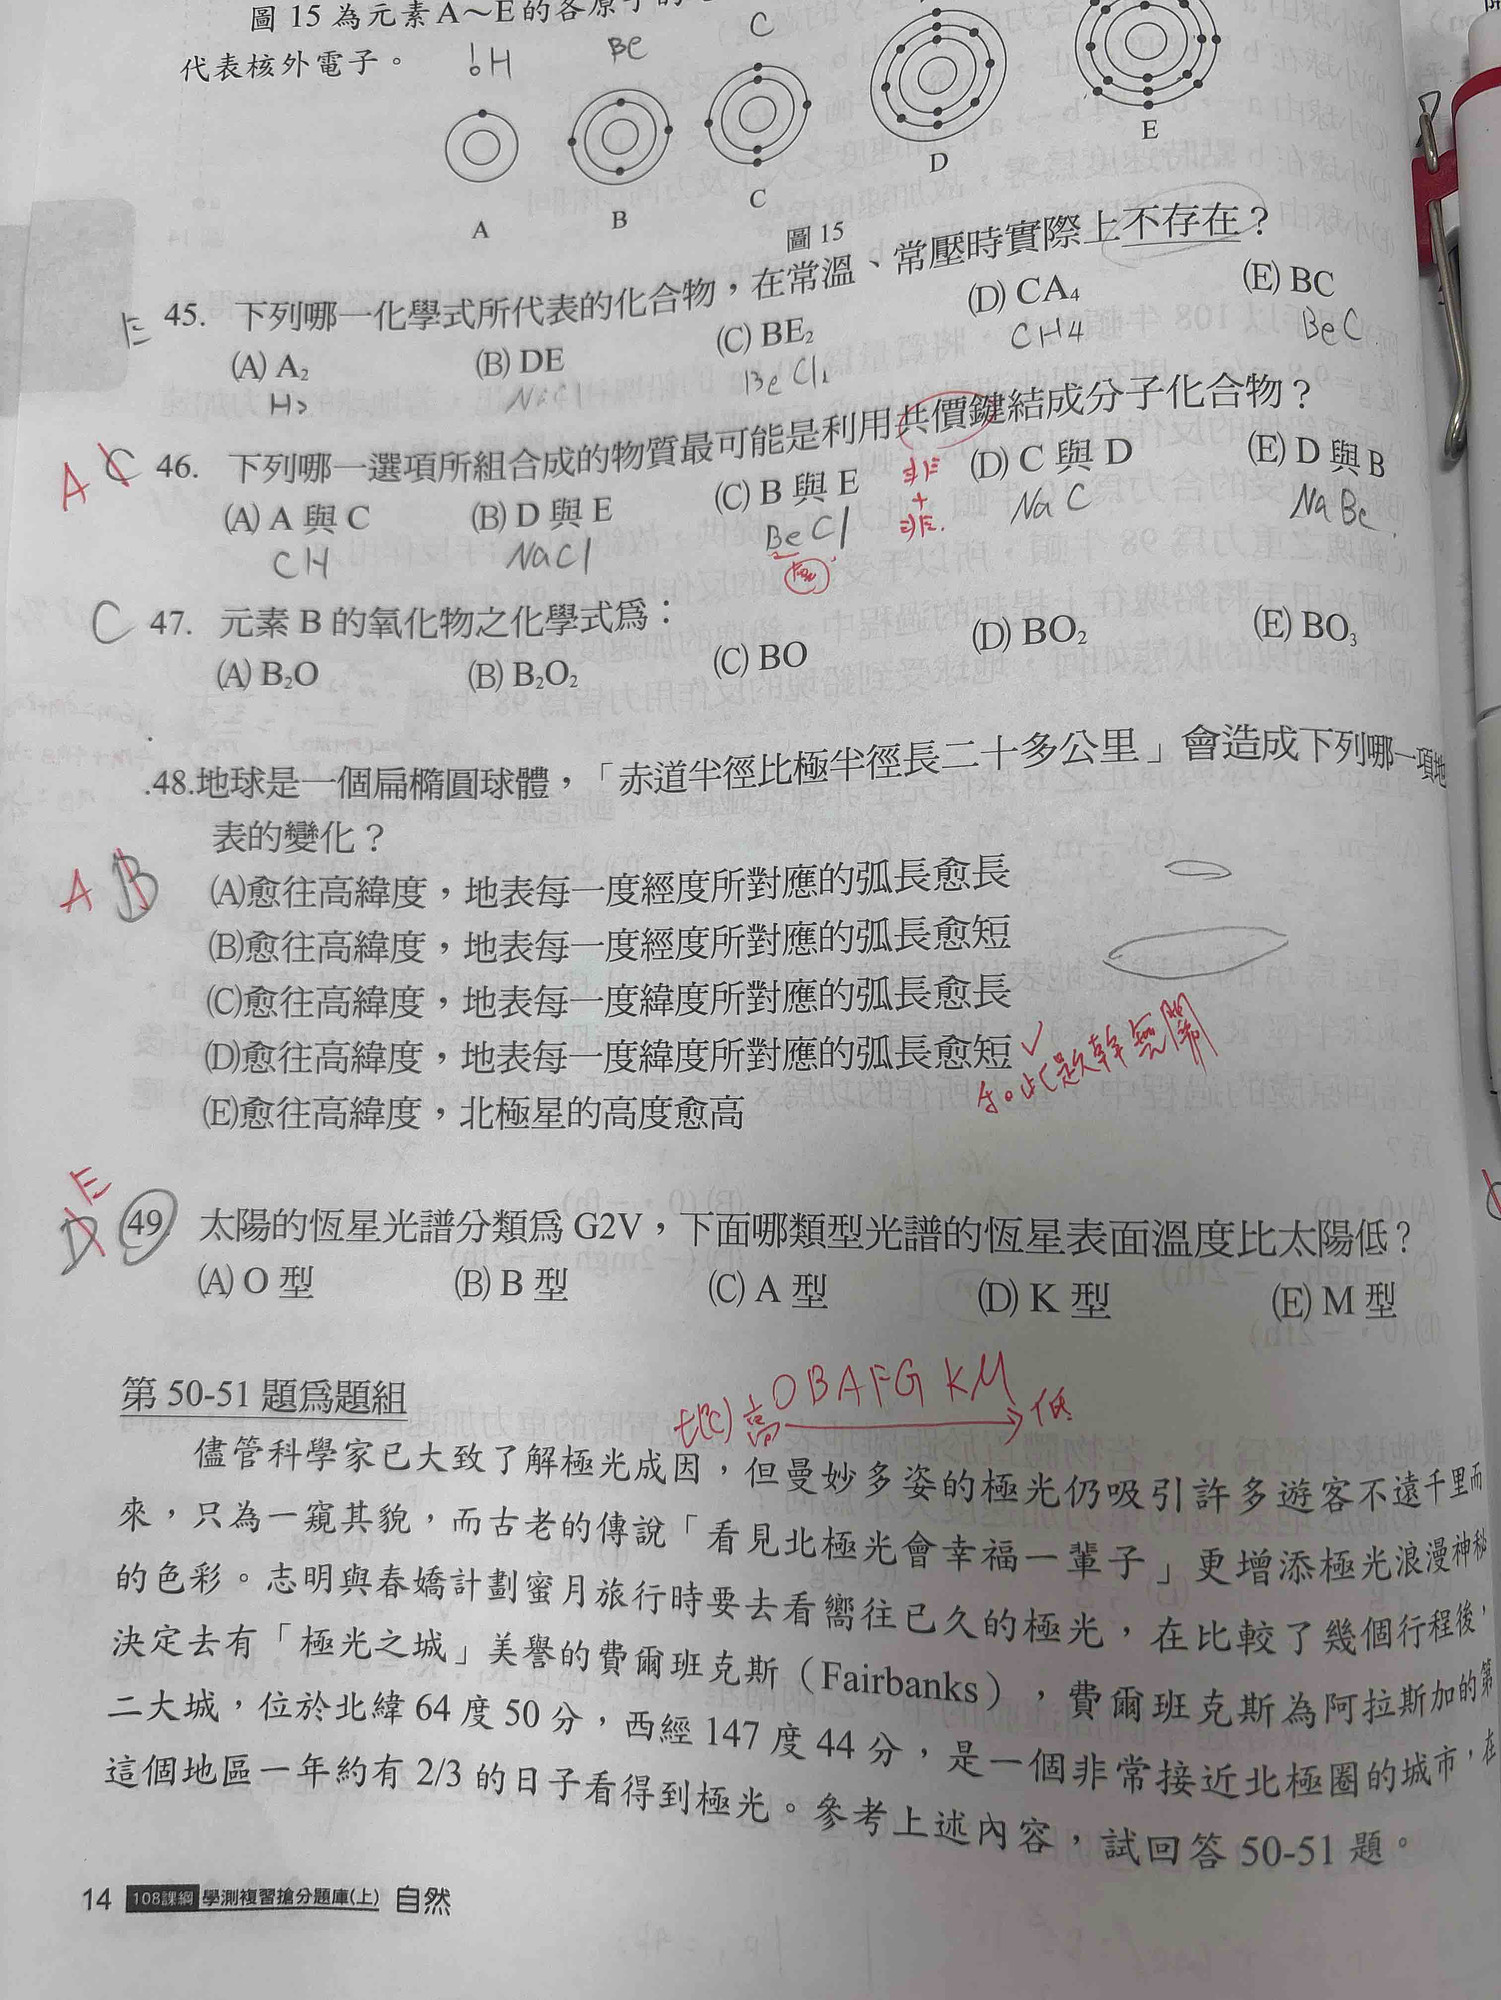 圖 15 為元素 A～E 的各原子的
代表核外電子。
H
Be
C
A
B
C
D
E
圖 15
E 45. 下列哪一化學式所代表的化合物，在常溫、常壓時實際上不存在？
(A) A₂ (B) DE (C) BE₂ (D) CA₄ (E) BC
H₂ NaCl BeCl₂ CH4 BeC
A C 46. 下列哪一選項所組合成的物質最可能是利用共價鍵結成分子化合物？
(A) A 與 C (B) D 與 E (C) B 與 E (D) C 與 D (E) D 與 B
CH NaCl BeCl NaC NaBe
非
+
非
C 47. 元素 B 的氧化物之化學式為：
(A) B₂O (B) B₂O₂ (C) BO (D) BO₂ (E) BO₃
48.地球是一個扁橢圓球體，「赤道半徑比極半徑長二十多公里」會造成下列哪一項地
表的變化？
A B
(A)愈往高緯度，地表每一度經度所對應的弧長愈長
(B)愈往高緯度，地表每一度經度所對應的弧長愈短
(C)愈往高緯度，地表每一度緯度所對應的弧長愈長
(D)愈往高緯度，地表每一度緯度所對應的弧長愈短
題幹無關
(E)愈往高緯度，北極星的高度愈高
E
D 49 太陽的恆星光譜分類為 G2V，下面哪類型光譜的恆星表面溫度比太陽低？
(A) O 型 (B) B 型 (C) A 型 (D) K 型 (E) M 型
t(℃) 高 OBAFG KM 低
第 50-51 題為題組
儘管科學家已大致了解極光成因，但曼妙多姿的極光仍吸引許多遊客不遠千里而
來，只為一窺其貌，而古老的傳說「看見北極光會幸福一輩子」更增添極光浪漫神秘
的色彩。志明與春嬌計劃蜜月旅行時要去看嚮往已久的極光，在比較了幾個行程後，
決定去有「極光之城」美譽的費爾班克斯（Fairbanks），費爾班克斯為阿拉斯加的第
二大城，位於北緯 64 度 50 分，西經 147 度 44 分，是一個非常接近北極圈的城市，在
這個地區一年約有 2/3 的日子看得到極光。參考上述內容，試回答 50-51 題。
14 108課綱 學測複習搶分題庫(上) 自然